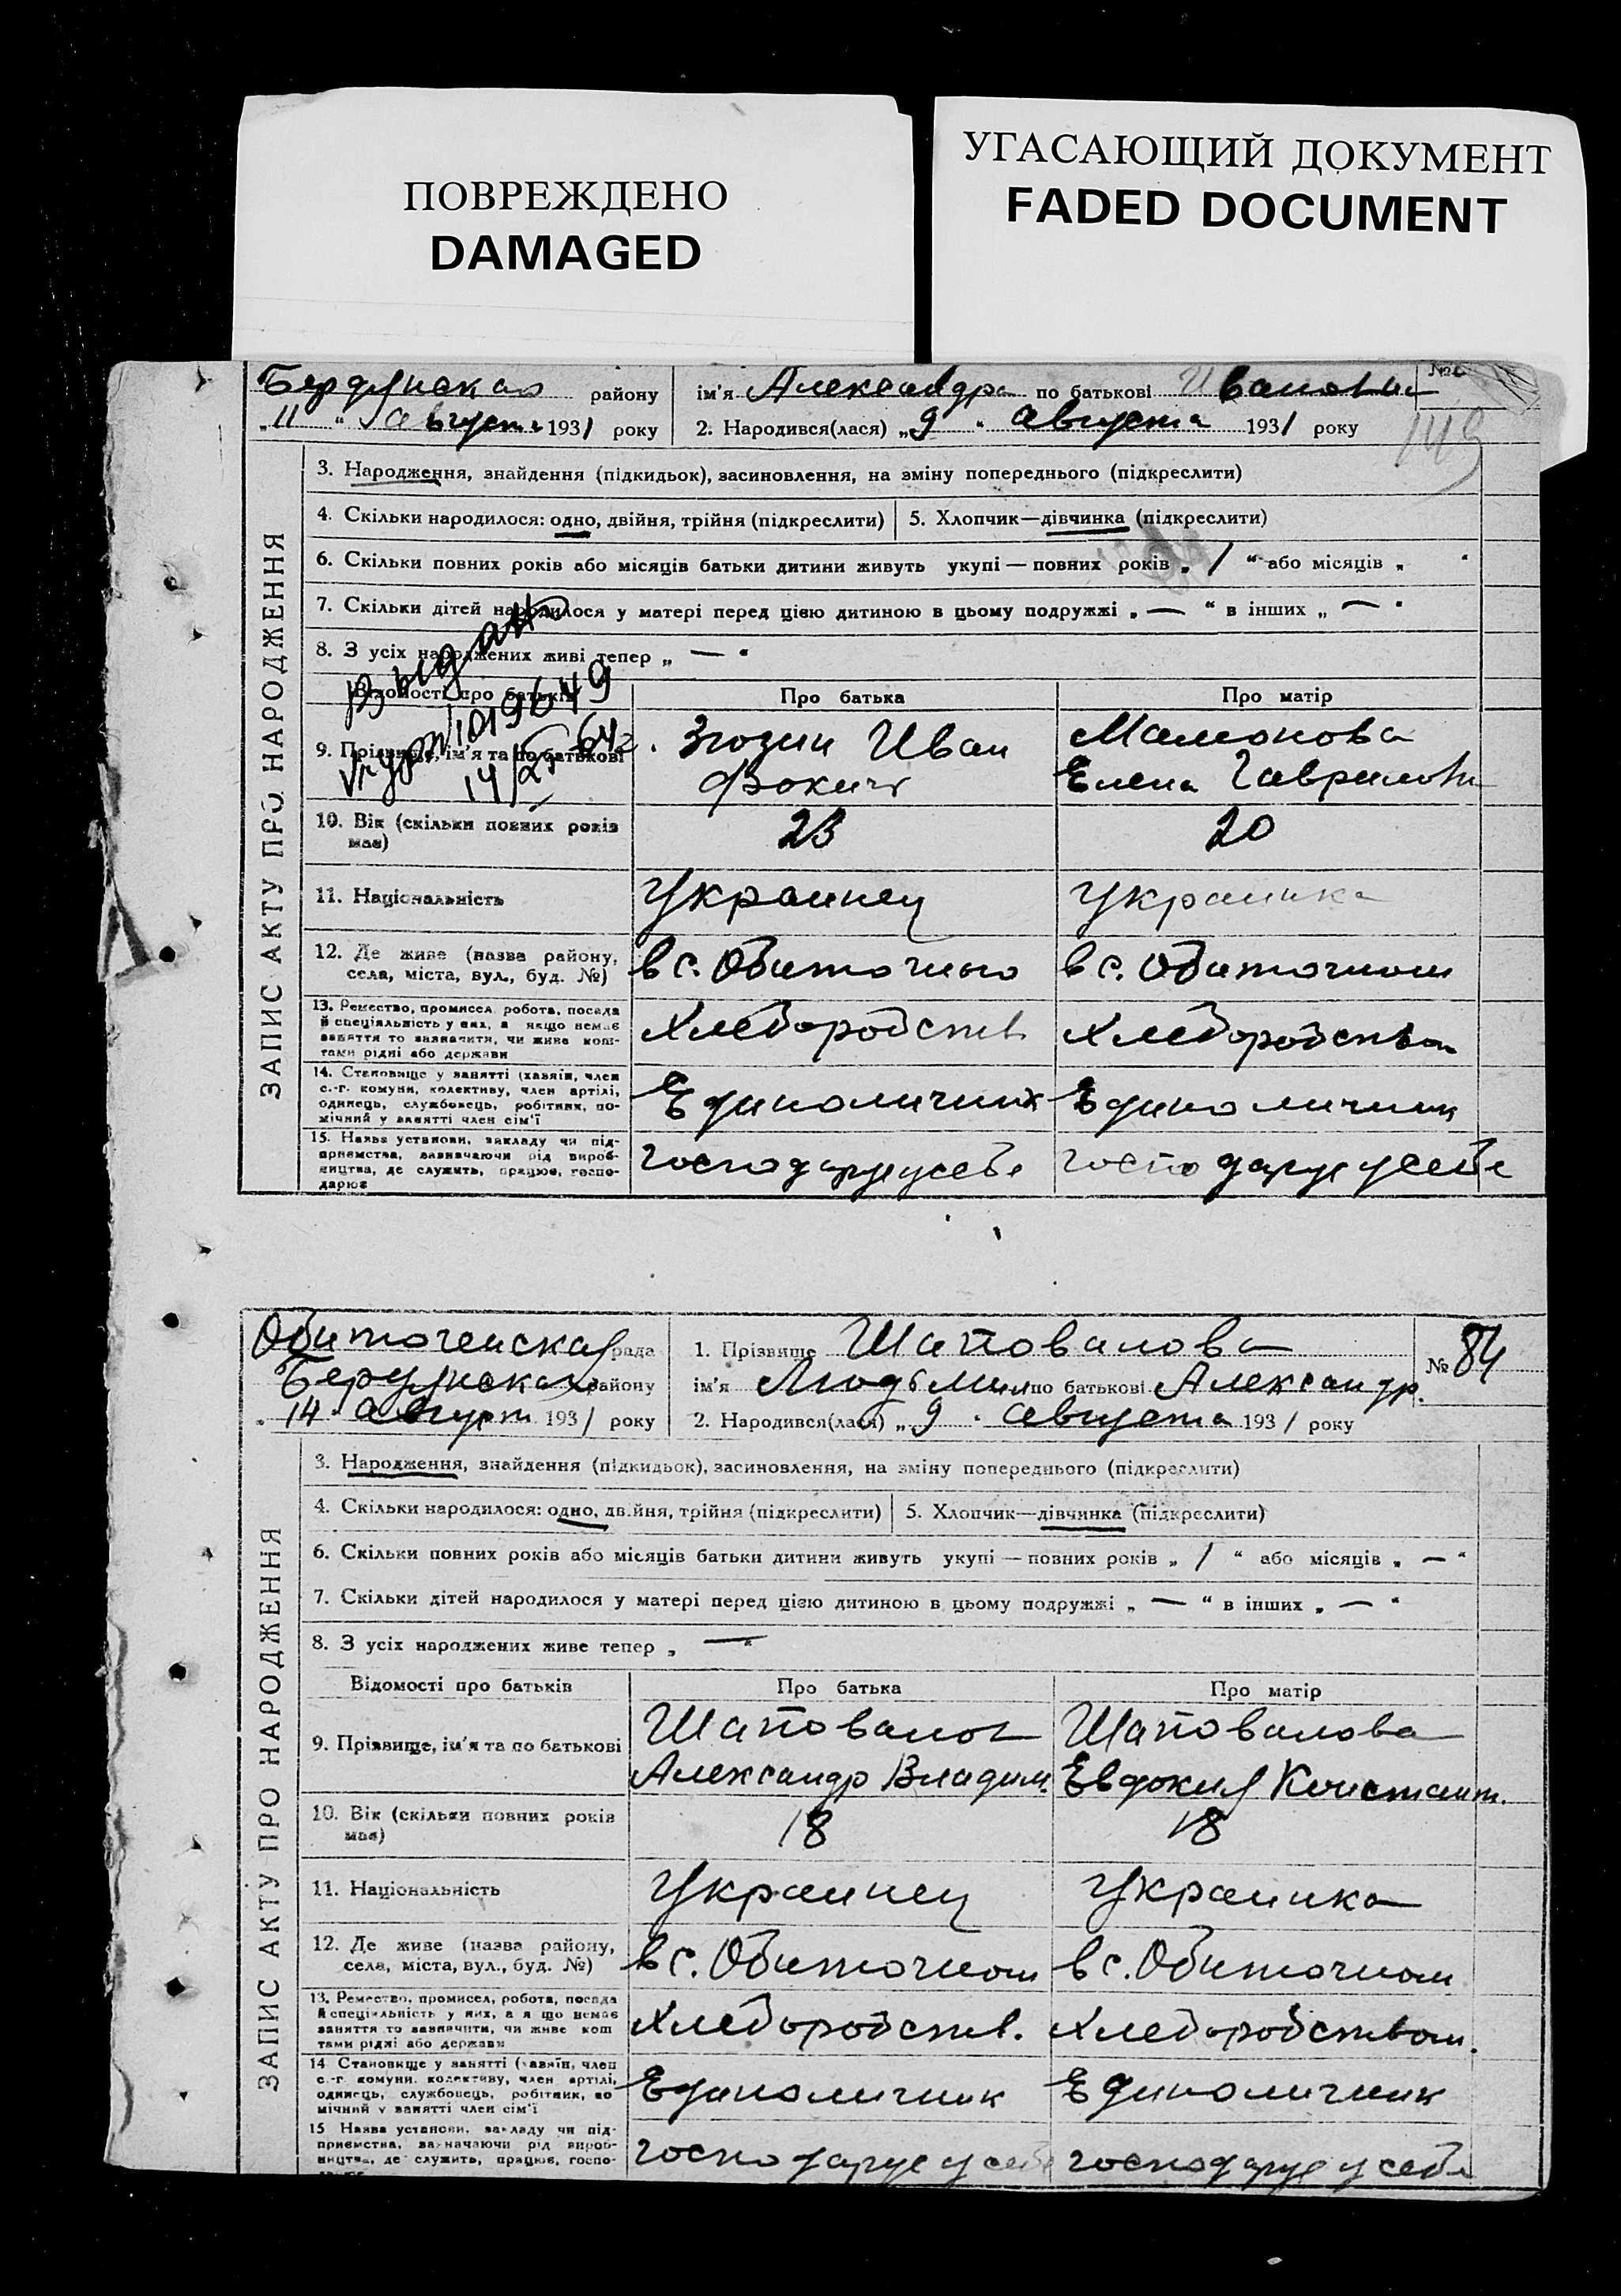 ПОВРЕЖДЕНО
DAMAGED
УГАСАЮЩИЙ ДОКУМЕНТ
FADED DOCUMENT
району ім'я Александра по батькові Ивановна
№
„11“ Августа 1931 року 2. Народився(лася) „9“ Августа 1931 року
149
ЗАПИС АКТУ ПРО НАРОДЖЕННЯ
3. Народження, знайдення (підкидьок), засиновлення, на зміну попереднього (підкреслити)
4. Скільки народилося: одно, двійня, трійня (підкреслити) 5. Хлопчик—дівчинка (підкреслити)
6. Скільки повних років або місяців батьки дитини живуть укупі — повних років „ / “ або місяців „ “
7. Скільки дітей народилося у матері перед цією дитиною в цьому подружжі „ — “ в інших „ — “
8. З усіх народжених живі тепер „ — “
Выдан
1019649
14/
64г.
Відомості про батьків Про батька Про матір
9. Прізвище, ім'я та по батькові
Иван
Фокич
Мамонова
Елена Гавриловн
10. Вік (скільки повних років має) 23 20
11. Національність Украинец Украинка
12. Де живе (назва району, села, міста, вул., буд. №) в с. Обиточно в с. Обиточном
13. Ремество, промисел, робота, посада й спеціяльність у них, а якщо немає заняття то зазначити, чи живе коштами рідні або держави
Хлебородств Хлебородством
14. Становище у занятті (хазяїн, член с.-г. комуни, колективу, член артілі, одинець, службовець, робітник, помічний у занятті член сім'ї
Единоличник Единоличник
15. Назва установи, закладу чи підприємства, зазначаючи рід виробництва, де служить, працює, господарює
господарує у себе господарує у себе
Обиточенская рада 1. Прізвище Шаповалова № 84
району ім'я Людьмила по батькові Александр.
„14“ Август 1931 року 2. Народився(лася) „9“ Августа 1931 року
ЗАПИС АКТУ ПРО НАРОДЖЕННЯ
3. Народження, знайдення (підкидьок), засиновлення, на зміну попереднього (підкреслити)
4. Скільки народилося: одно, двійня, трійня (підкреслити) 5. Хлопчик—дівчинка (підкреслити)
6. Скільки повних років або місяців батьки дитини живуть укупі — повних років „ / “ або місяців „ — “
7. Скільки дітей народилося у матері перед цією дитиною в цьому подружжі „ — “ в інших „ — “
8. З усіх народжених живе тепер „ — “
Відомості про батьків Про батька Про матір
9. Прізвище, ім'я та по батькові
Шаповалов
Александр Владим.
Шаповалова
Евдокия Констант.
10. Вік (скільки повних років має) 18 18
11. Національність Украинец Украинка
12. Де живе (назва району, села, міста, вул., буд. №) в с. Обиточном в с. Обиточном
13. Ремество, промисел, робота, посада й спеціяльність у них, а якщо немає заняття то зазначити, чи живе коштами рідні або держави
Хлебородств. Хлебородством.
14 Становище у занятті (хазяїн, член с.-г. комуни, колективу, член артілі, одинець, службовець, робітник, помічний у занятті член сім'ї
Единоличник Единоличник
15 Назва установи, закладу чи підприємства, зазначаючи рід виробництва, де служить, працює, господарює
господарує у себе господарує у себе